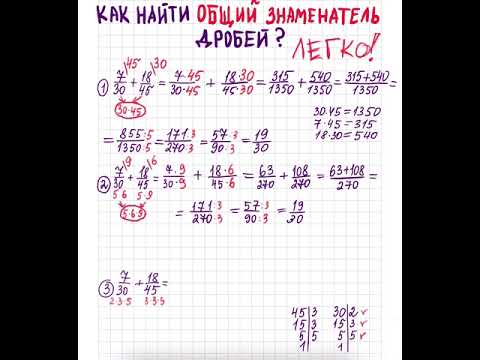 КАК НАЙТИ ОБЩИЙ ЗНАМЕНАТЕЛЬ
ДРОБЕЙ? ЛЕГКО!
1) 7/30 |45 + 18/45 |30 = 7·45/30·45 + 18·30/45·30 = 315/1350 + 540/1350 = 315+540/1350 =
30·45
30·45=1350
7·45=315
18·30=540
= 855:5/1350:5 = 171:3/270:3 = 57:3/90:3 = 19/30
2) 7/30 |9 + 18/45 |6 = 7·9/30·9 + 18·6/45·6 = 63/270 + 108/270 = 63+108/270 =
5·6 5·9
= 171:3/270:3 = 57:3/90:3 = 19/30
3) 7/30 + 18/45 =
2·3·5 3·3·5
45|3 30|2
15|3 15|3
5|5 5|5
1| 1|